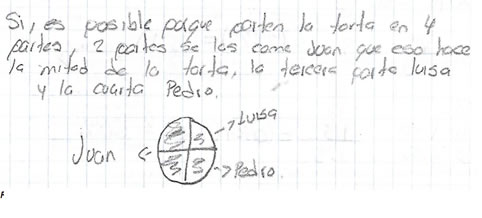 Si, es posible porque parten la torta en 4
partes, 2 partes se las come Juan que eso hace
la mitad de la torta, la tercera parte luisa
y la cuarta Pedro.
→LUISA
Juan ←
→Pedro.